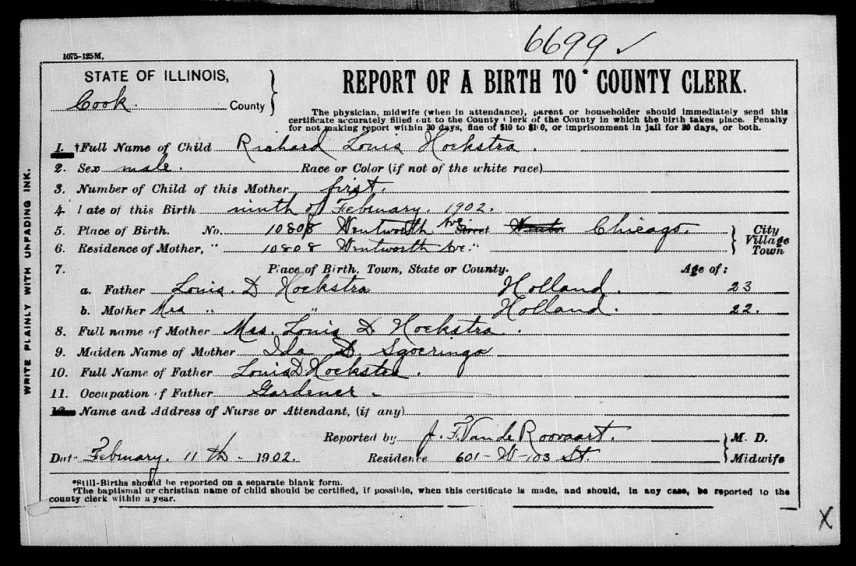 6699 ✓
1075-125M.
STATE OF ILLINOIS,
Cook County
REPORT OF A BIRTH TO COUNTY CLERK.
The physician, midwife (when in attendance), parent or householder should immediately send this
certificate accurately filled out to the County Clerk of the County in which the birth takes place. Penalty
for not making report within 30 days, fine of $10 to $100, or imprisonment in jail for 30 days, or both.
1. †Full Name of Child Richard Louis Hoekstra.
2. Sex male. Race or Color (if not of the white race)
3. Number of Child of this Mother first.
4. Date of this Birth ninth of February. 1902.
5. Place of Birth. No. 10808 Wentworth Ave Street Chicago. City
Village
Town
6. Residence of Mother, " 10808 Wentworth Ave. "
7. Place of Birth, Town, State or County. Age of:
a. Father Louis. D Hoekstra Holland. 23
b. Mother Mrs " " Holland. 22.
8. Full name of Mother Mrs. Louis D Hoekstra.
9. Maiden Name of Mother Ida D.
10. Full Name of Father Louis D Hoekstra.
11. Occupation of Father Gardener
12. Name and Address of Nurse or Attendant, (if any)
Reported by J. F. Van de Roovaart. M. D.
Date February. 11th. 1902. Residence 601-W-103 St. Midwife
*Still-Births should be reported on a separate blank form.
†The baptismal or christian name of child should be certified, if possible, when this certificate is made, and should, in any case, be reported to the
county clerk within a year.
WRITE PLAINLY WITH UNFADING INK.
X